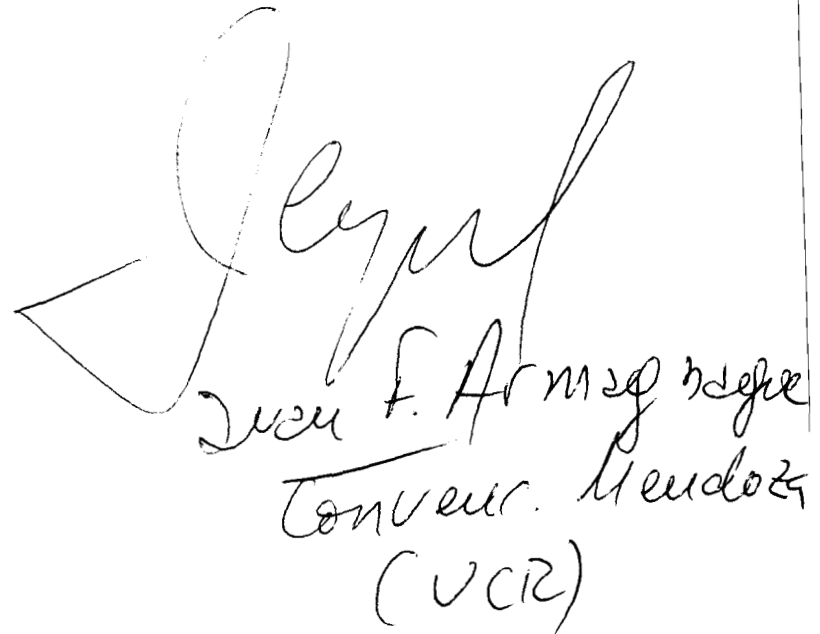 Juan F. Armagnague
Convenc. Mendoza
(UCR)